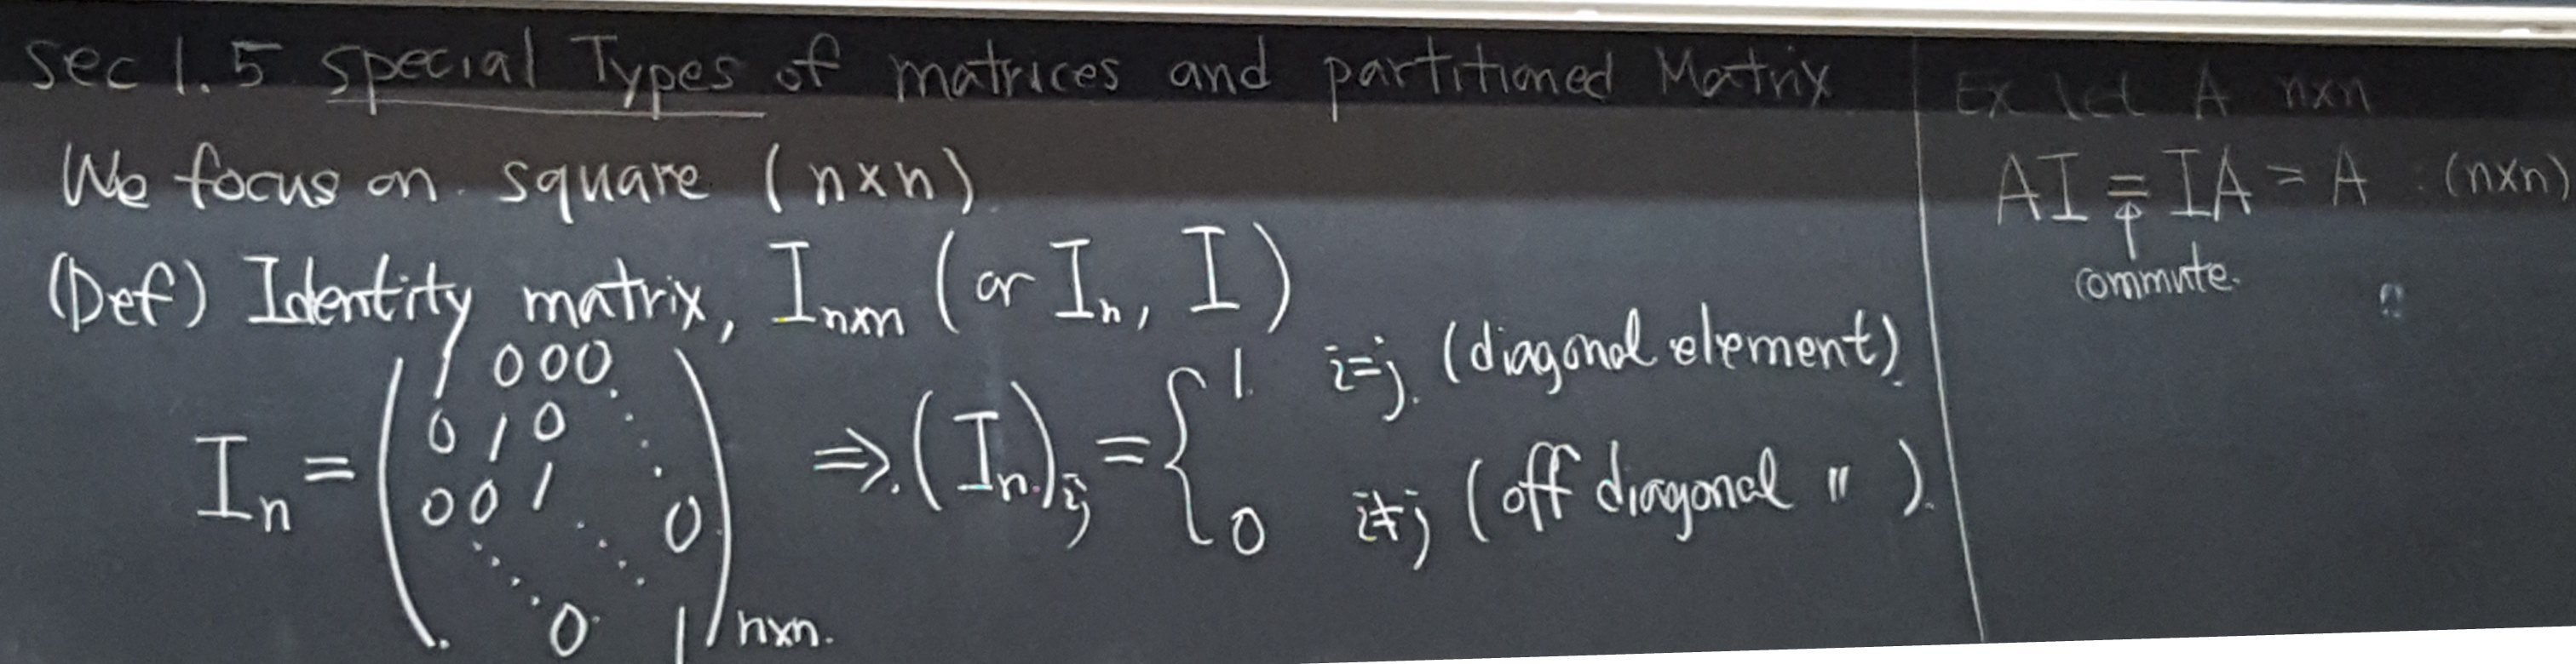 Sec 1.5 Special Types of matrices and partitioned Matrix
We focus on square (n×n)
(Def) Identity matrix, I_{n×n} (or I_n, I)
I_n = ( 1 0 0 0 ⋱
0 1 0 ⋱
0 0 1 ⋱ 0
⋱ 0 1 )_{n×n}.
⇒ (I_n)_{ij} = { 1 i=j (diagonal element).
0 i≠j (off diagonal 〃 ).
Ex let A n×n
AI = IA = A : (n×n)
↑
commute.